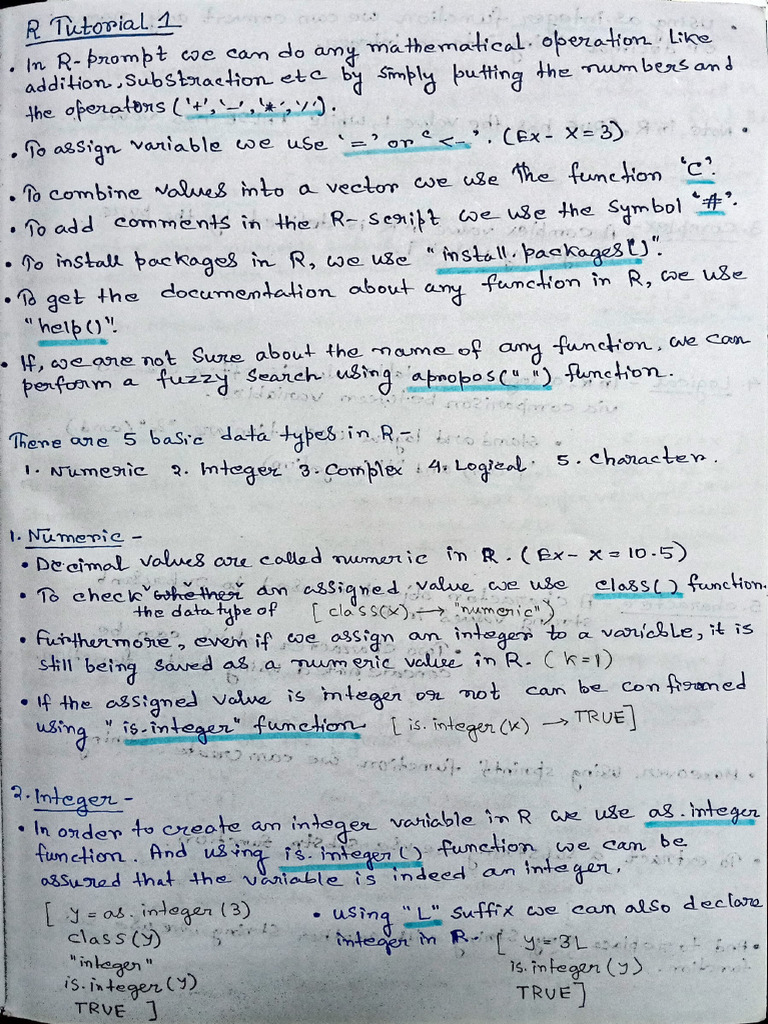 R Tutorial 1
• In R-prompt we can do any mathematical operation like
addition, substraction etc by simply putting the numbers and
the operators ('+', '-', '*', '/').
• To assign variable we use '=' or '<-'. (Ex- X=3)
• To combine values into a vector we use the function 'C'.
• To add comments in the R-script we use the symbol '#'.
• To install packages in R, we use "install.packages()".
• To get the documentation about any function in R, we use
"help()".
• If, we are not sure about the name of any function, we can
perform a fuzzy search using apropos(" ") function.
There are 5 basic data types in R-
1. Numeric 2. Integer 3. Complex 4. Logical 5. Character.
1. Numeric -
• Decimal values are called numeric in R. (Ex- X = 10.5)
• To check whether an assigned value we use class() function.
the data type of [class(x) → "numeric"]
• Furthermore, even if we assign an integer to a variable, it is
still being saved as a numeric value in R. (K=1)
• If the assigned value is integer or not can be confirmed
using "is.integer" function [is.integer(K) → TRUE]
2. Integer -
• In order to create an integer variable in R we use as.integer
function. And using is.integer() function we can be
assured that the variable is indeed an integer.
[ y = as.integer(3)
class(y)
"integer"
is.integer(y)
TRUE ]
• using "L" suffix we can also declare
integer in R- [ y = 3L
is.integer(y)
TRUE]